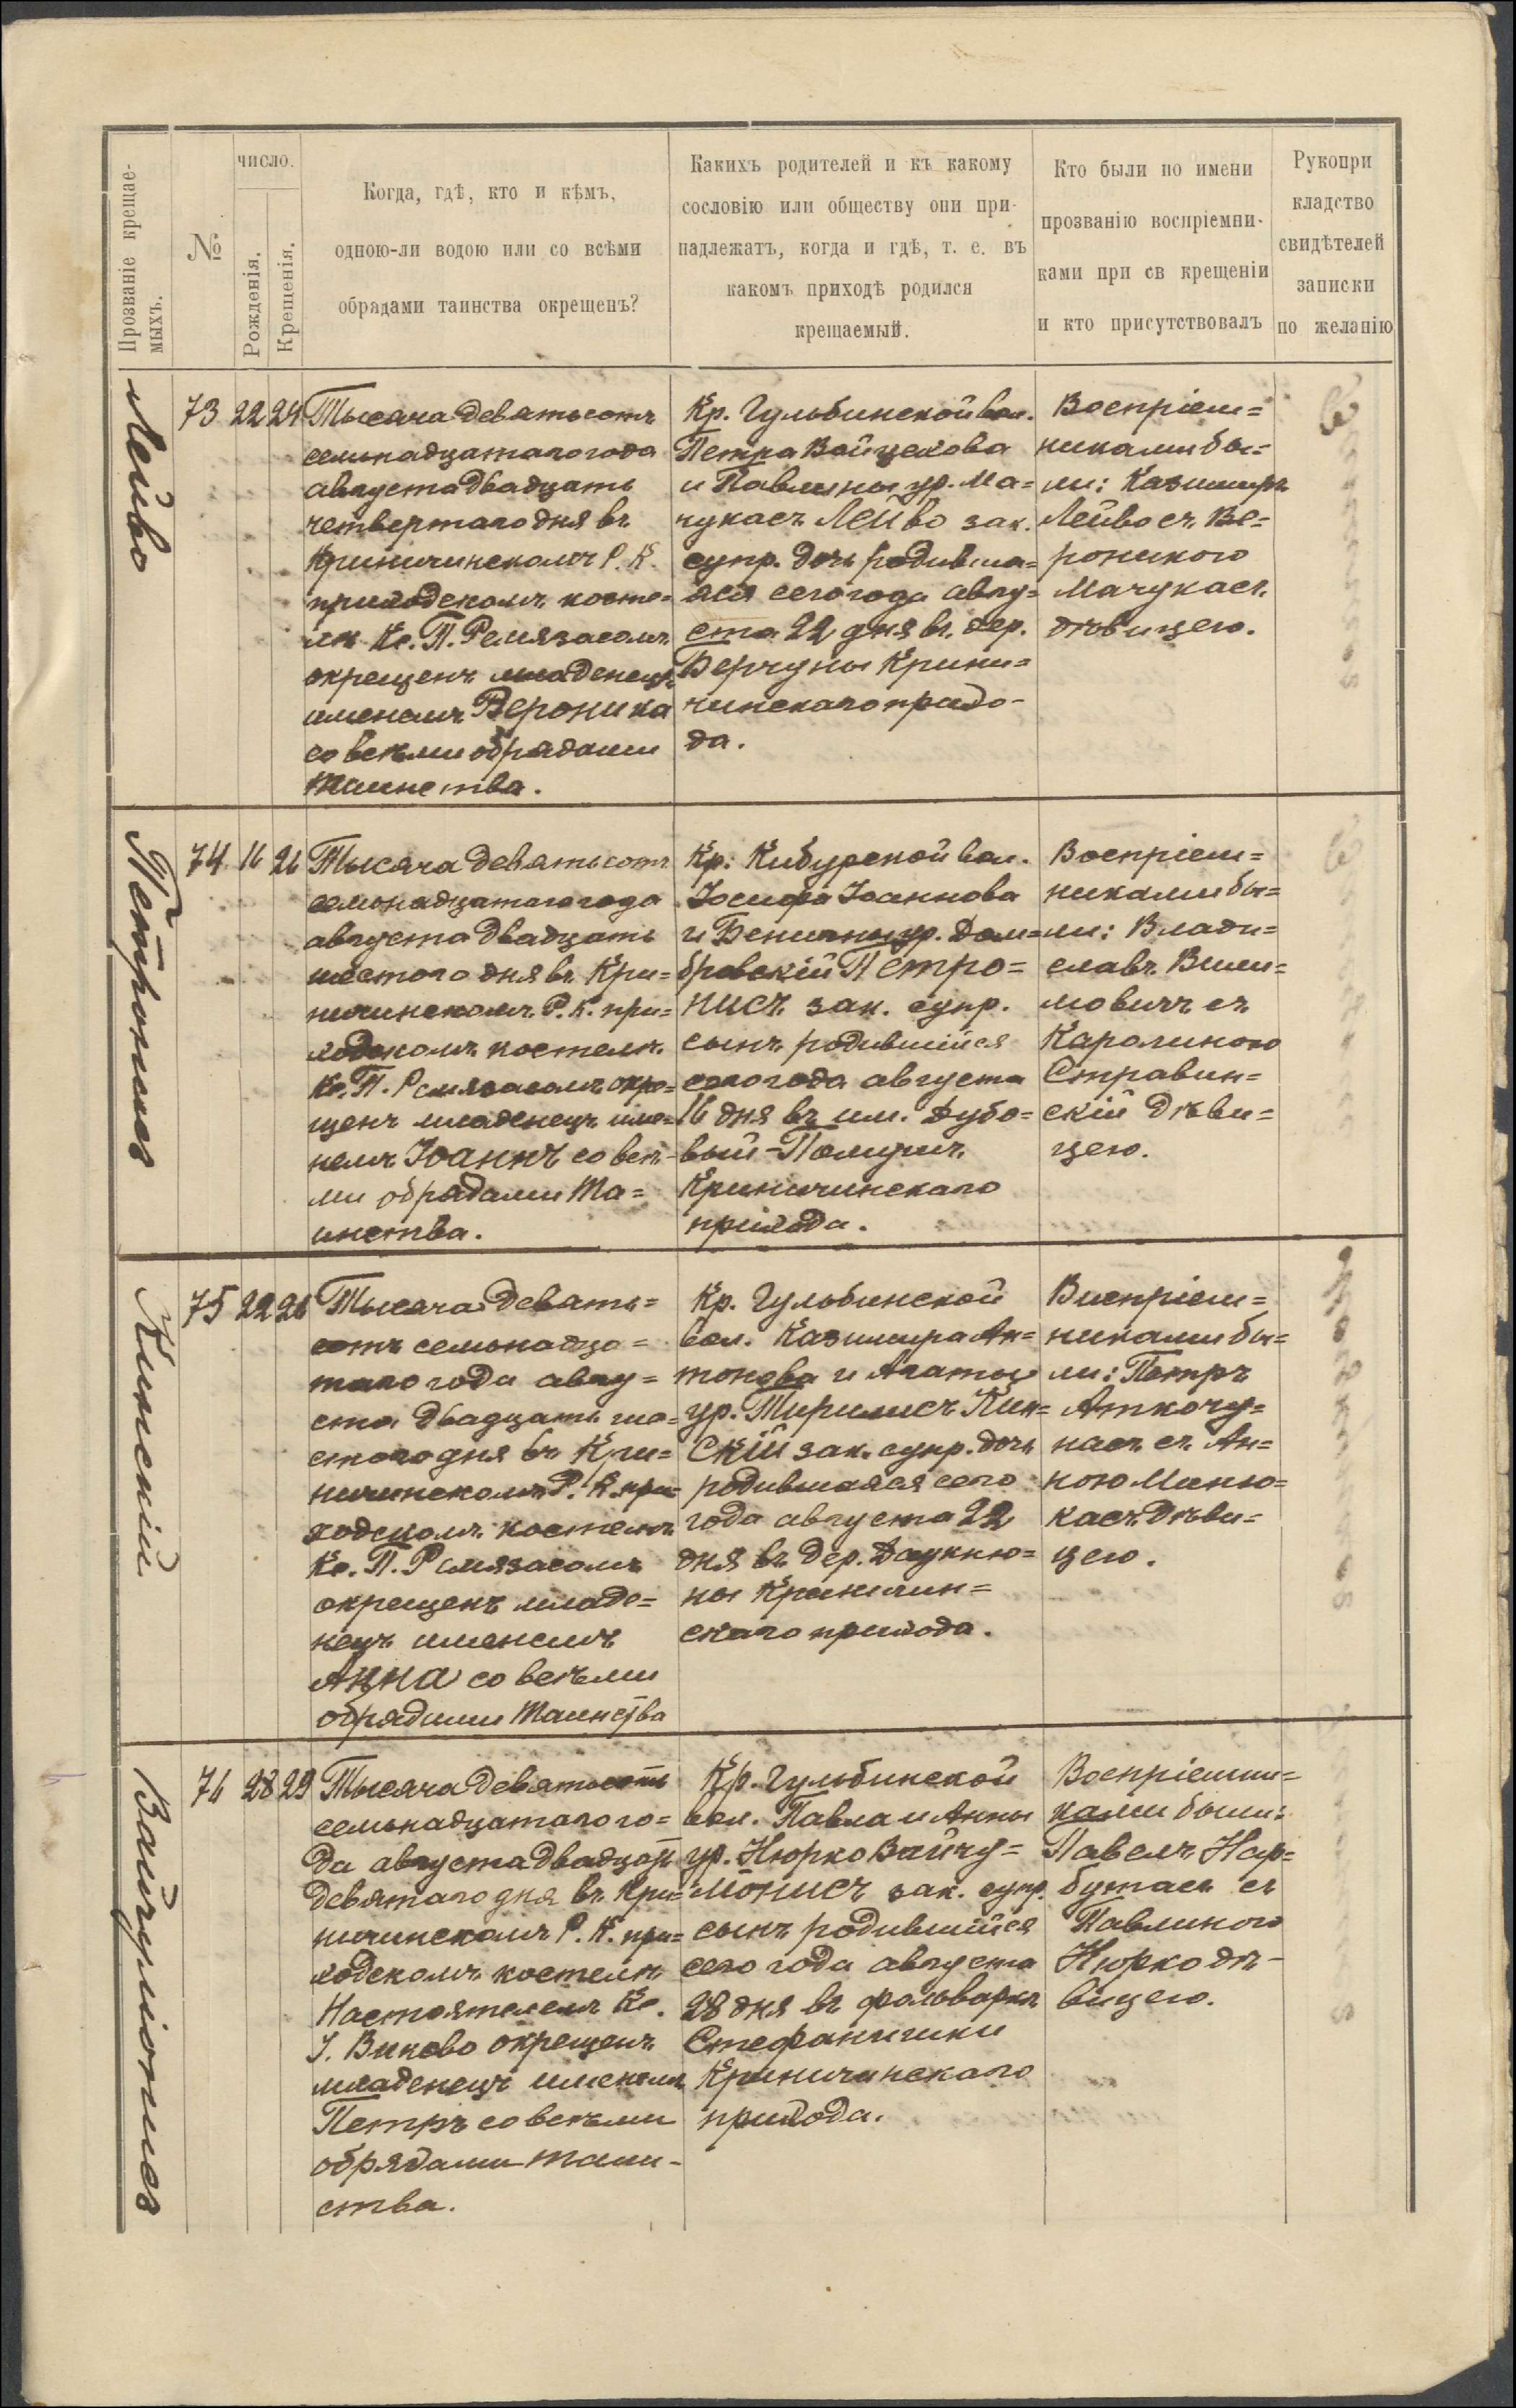 Прозваніе крещае-
мыхъ.
№
число.
Рожденія.
Крещенія.
Когда, гдѣ, кто и кѣмъ,
одною-ли водою или со всѣми
обрядами таинства окрещенъ?
Какихъ родителей и къ какому
сословію или обществу они при-
надлежатъ, когда и гдѣ, т. е. въ
какомъ приходѣ родился
крещаемый.
Кто были по имени
прозванію воспріемни-
ками при св крещеніи
и кто присутствовалъ
Рукопри
кладство
свидѣтелей
записки
по желанію
Лейво
73 22 24
Тысяча девятьсотъ
семьнадцатаго года
августа двадцать
четвертаго дня въ
Криничинскомъ Р. К.
приходскомъ косте=
лѣ Кс. П. Ремязасомъ
окрещенъ младенецъ
именемъ Вероника
со всѣми обрядами
Таинства.
Кр. Гульбинской вол.
Петра Войцехова
и Павлины ур. Ма=
чукасъ Лейво зак.
супр. дочь родивша=
яся сего года авгу=
ста 22 дня въ дер.
Верчуны Крини=
чинскаго прихо-
да.
Воспріем=
никами бы=
ли: Казимиръ
Лейво съ Ве=
роникою
Мачукасъ
дѣвицею.
Петронисъ
74 16 26
Тысяча девятьсотъ
семьнадцатаго года
августа двадцать
шестого дня въ Кри=
ничинскомъ Р. К. при=
ходскомъ костелѣ
Кс. П. Ремязасомъ окре=
щенъ младенецъ име=
немъ Іоаннъ со всѣ-
ми обрядами Та=
инства.
Кр. Кибурской вол.
Іосифа Іоаннова
и Бенигны ур. Дом=
бровскій Петро=
нисъ зак. супр.
сынъ родившійся
сего года августа
16 дня въ им. Дубо=
вый-
Криничинскаго
прихода.
Воспріем=
никами бы=
ли: Влади=
славъ Вили=
мовичъ съ
Каролиною
Стравин=
скій дѣви=
цею.
Кинскій
75 22 26
Тысяча девять=
сотъ семьнадца=
таго года авгу=
ста двадцать ше=
стого дня въ Кри=
ничинскомъ Р. К. при=
ходскомъ костелѣ
Кс. П. Ремязасомъ
окрещенъ младе=
нецъ именемъ
Анна со всѣми
обрядами Таинства
Кр. Гульбинской
вол. Казимира Ан=
тонова и Агаты
ур. Тирилисъ Кин=
скій зак. супр. дочь
родившаяся сего
года августа 22
дня въ дер. Даукню=
ны Криничин=
скаго прихода.
Виспріем=
никами бы=
ли: Петръ
Аткочу=
насъ съ Ан=
ною Миню=
касъ дѣви=
цею.
Вайчуліонисъ
76 28 29
Тысяча девятьсотъ
семьнадцатаго го=
да августа двадцать
девятаго дня въ Кри=
ничинскомъ Р. К. при=
ходскомъ костелѣ
Настоятелемъ Кс.
І. Виково окрещенъ
младенецъ именемъ
Петръ со всѣми
обрядами таин-
ства.
Кр. Гульбинской
вол. Павла и Анны
ур. Нюрко Вайчу=
ліонисъ зак. супр.
сынъ родившійся
сего года августа
28 дня въ фольваркѣ
Стефанишки
Криничинскаго
прихода.
Воспріемни=
ками были:
Павелъ Нар=
бутасъ съ
Павлиною
Нюрко дѣ-
вицею.